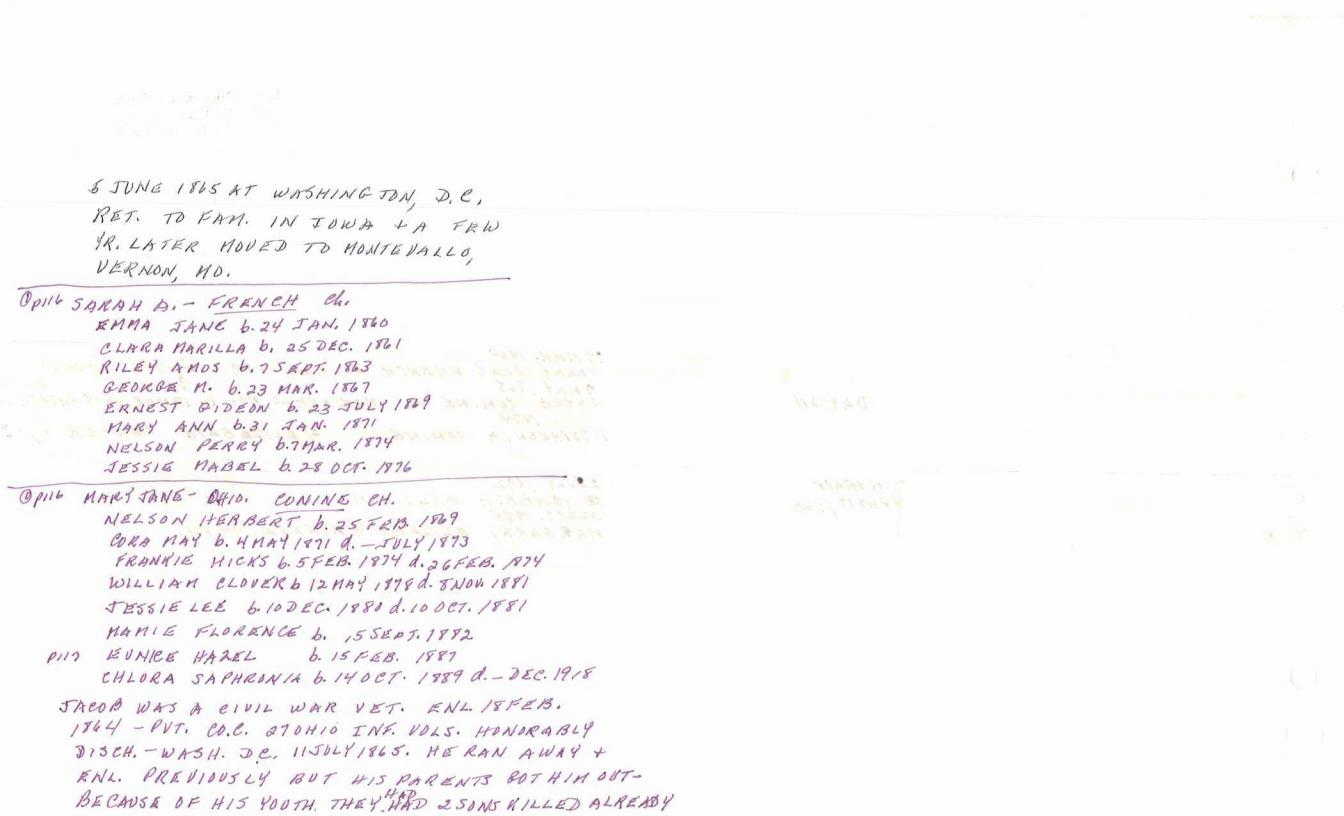 5 JUNE 1865 AT WASHINGTON, D.C.,
RET. TO FAM. IN IOWA + A FEW
YR. LATER MOVED TO MONTEVALLO,
VERNON, MO.
① p116 SARAH A. - FRENCH Ch.
EMMA JANE b. 24 JAN. 1860
CLARA MARILLA b. 25 DEC. 1861
RILEY AMOS b. 7 SEPT. 1863
GEORGE M. b. 23 MAR. 1867
ERNEST GIDEON b. 23 JULY 1869
MARY ANN b. 31 JAN. 1871
NELSON PERRY b. 7 MAR. 1874
JESSIE MABEL b. 28 OCT. 1876
① p116 MARY JANE - OHIO. CONINE CH.
NELSON HERBERT b. 25 FEB. 1869
CORA MAY b. 4 MAY 1871 d. — JULY 1873
FRANKIE HICKS b. 5 FEB. 1874 d. 26 FEB. 1874
WILLIAM CLOVER b 12 MAY 1878 d. 8 NOV. 1881
JESSIE LEE b. 10 DEC. 1880 d. 10 OCT. 1881
MAMIE FLORENCE b. 15 SEPT. 1882
p117 EUNICE HAZEL b. 15 FEB. 1887
CHLORA SAPHRONIA b. 14 OCT. 1889 d. — DEC. 1918
JACOB WAS A CIVIL WAR VET. ENL. 18 FEB.
1864 - PVT. CO.C. 27 OHIO INF. VOLS. HONORABLY
DISCH. - WASH. D.C. 11 JULY 1865. HE RAN AWAY +
ENL. PREVIOUSLY BUT HIS PARENTS GOT HIM OUT-
BECAUSE OF HIS YOUTH. THEY HAD 2 SONS KILLED ALREADY